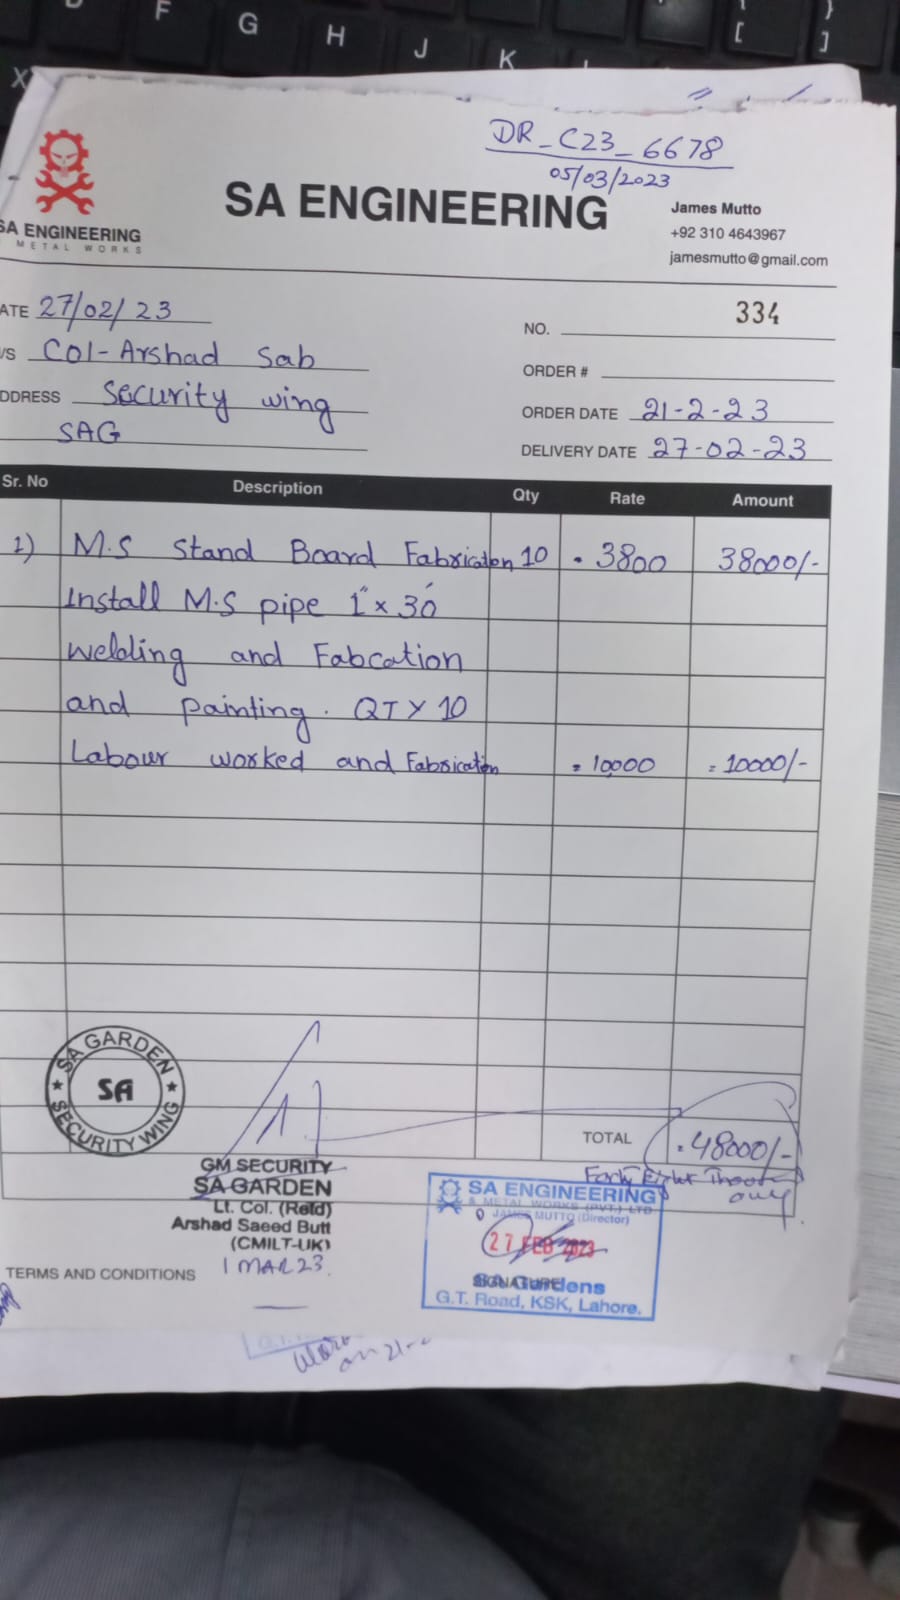 DR_C23_6678
05/03/2023
SA ENGINEERING
METAL WORKS
SA ENGINEERING
James Mutto
+92 310 4643967
jamesmutto@gmail.com
ATE 27/02/23
NO. 334
/S Col-Arshad Sab
ORDER #
DDRESS Security wing
ORDER DATE 21-2-23
SAG
DELIVERY DATE 27-02-23
Sr. No Description Qty Rate Amount
1) M.S Stand Board Fabrication 10 3800 38000/-
Install M.S pipe 1"x30'
welding and Fabcation
and painting. QTY 10
Labour worked and Fabrication = 10,000 = 10000/-
SA GARDEN
SA
SECURITY WING
TOTAL 48000/-
Forty Eight
only
GM SECURITY
SA GARDEN
Lt. Col. (Retd)
Arshad Saeed Butt
(CMILT-UK)
1 MAR 23.
SA ENGINEERING
& METAL WORKS (PVT.) LTD
JAMES MUTTO (Director)
27 FEB 2023
SIGNATURE
SA Gardens
G.T. Road, KSK, Lahore.
TERMS AND CONDITIONS
F
G
H
J
K
X
[
}
]